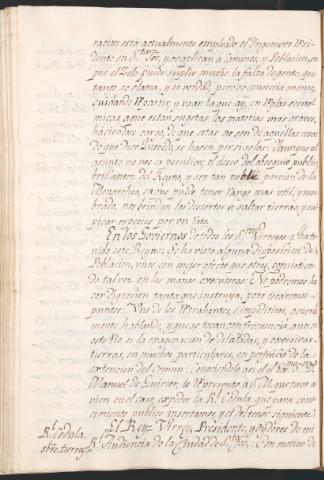 racion está actualmente empleado el Yngeniero Resi-
dente en Sta Fee, y se aplican à Caminos, y Poblacion, en
que el zelo puede suplir mucho la falta de gente, que
tanto se clama, y es verdad, pero se conoceria menos,
cuidando Repartir, y usar la que ay, en Reglas econo-
micas, à que están sugetas las materias mas graves,
haciendose cargo, de que estas no son de aquellas cosas
de que dice Querido, se hacen por si solas. Aunque el
asunto no nos es peculiar, el deseo del obsequio publico,
brillantez del Reyno, y ser tan noble porcion de la
Monarchia, ca no puede tener Rango mas util, y nom-
brado, nos brindan los desiertos à saltar tierras, y sal-
picar especies por un rato.
En los Goviernos de todos los Sres Virreyes q.e ha te-
nido este Reyno; Se ha visto alguna disposicion de
Poblacion, unos con mejor efecto que otros, consistien-
do tal vez en las manos executoras: No podremos ha-
cer digresion tanta que instruya, pero tocaremos
puntos: Uno de los Retrahentes, è impeditivos, general-
mente hablando, y que se tocan con frecuencia, aun en
este Rio, es la enagenacion de dilatadas, y excesivas
tierras, en muchos particulares, en perjuicio de la
extencion del Comun: Conociendolo asi el Exmo Sr Dn
Manuel de Guirior, lo Representò à S.M. que tuvo à
vien en el caso, expedir la Rl Cedula que para cono-
cimiento publico insertamos, y es del tenor siguiente.
Rl Cedula
sbre tierras
El Rey: Virrey, Presidente, y oydores de mi
Rl Audiencia de la Ciudad de Sta Fee: Con motivo de